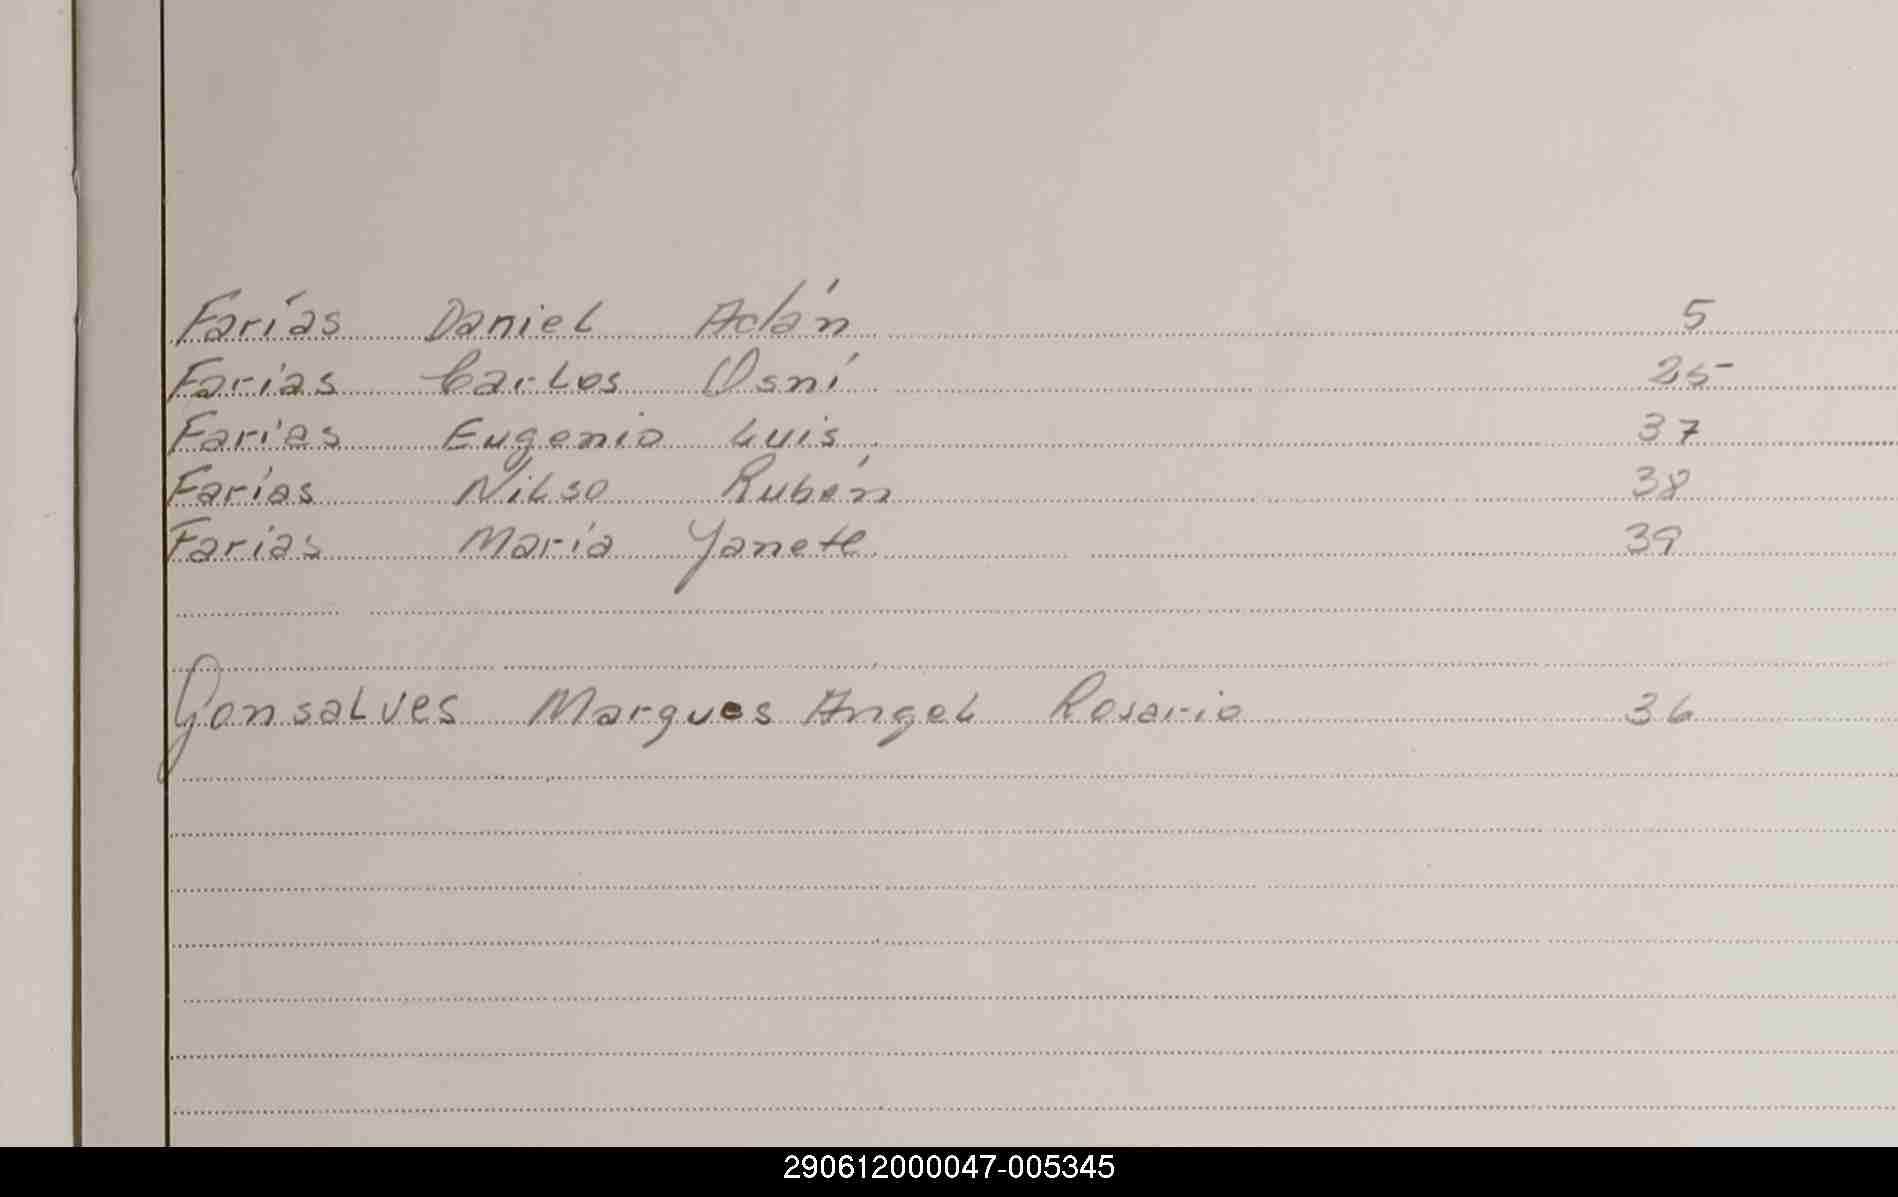 Farías Daniel Adán 5
Farías Carlos Osní 25
Farías Eugenio Luis 37
Farías Nilso Rubén 38
Farías María Yanete 39
Gonsalves Margues Angel Rosario 36
290612000047-005345